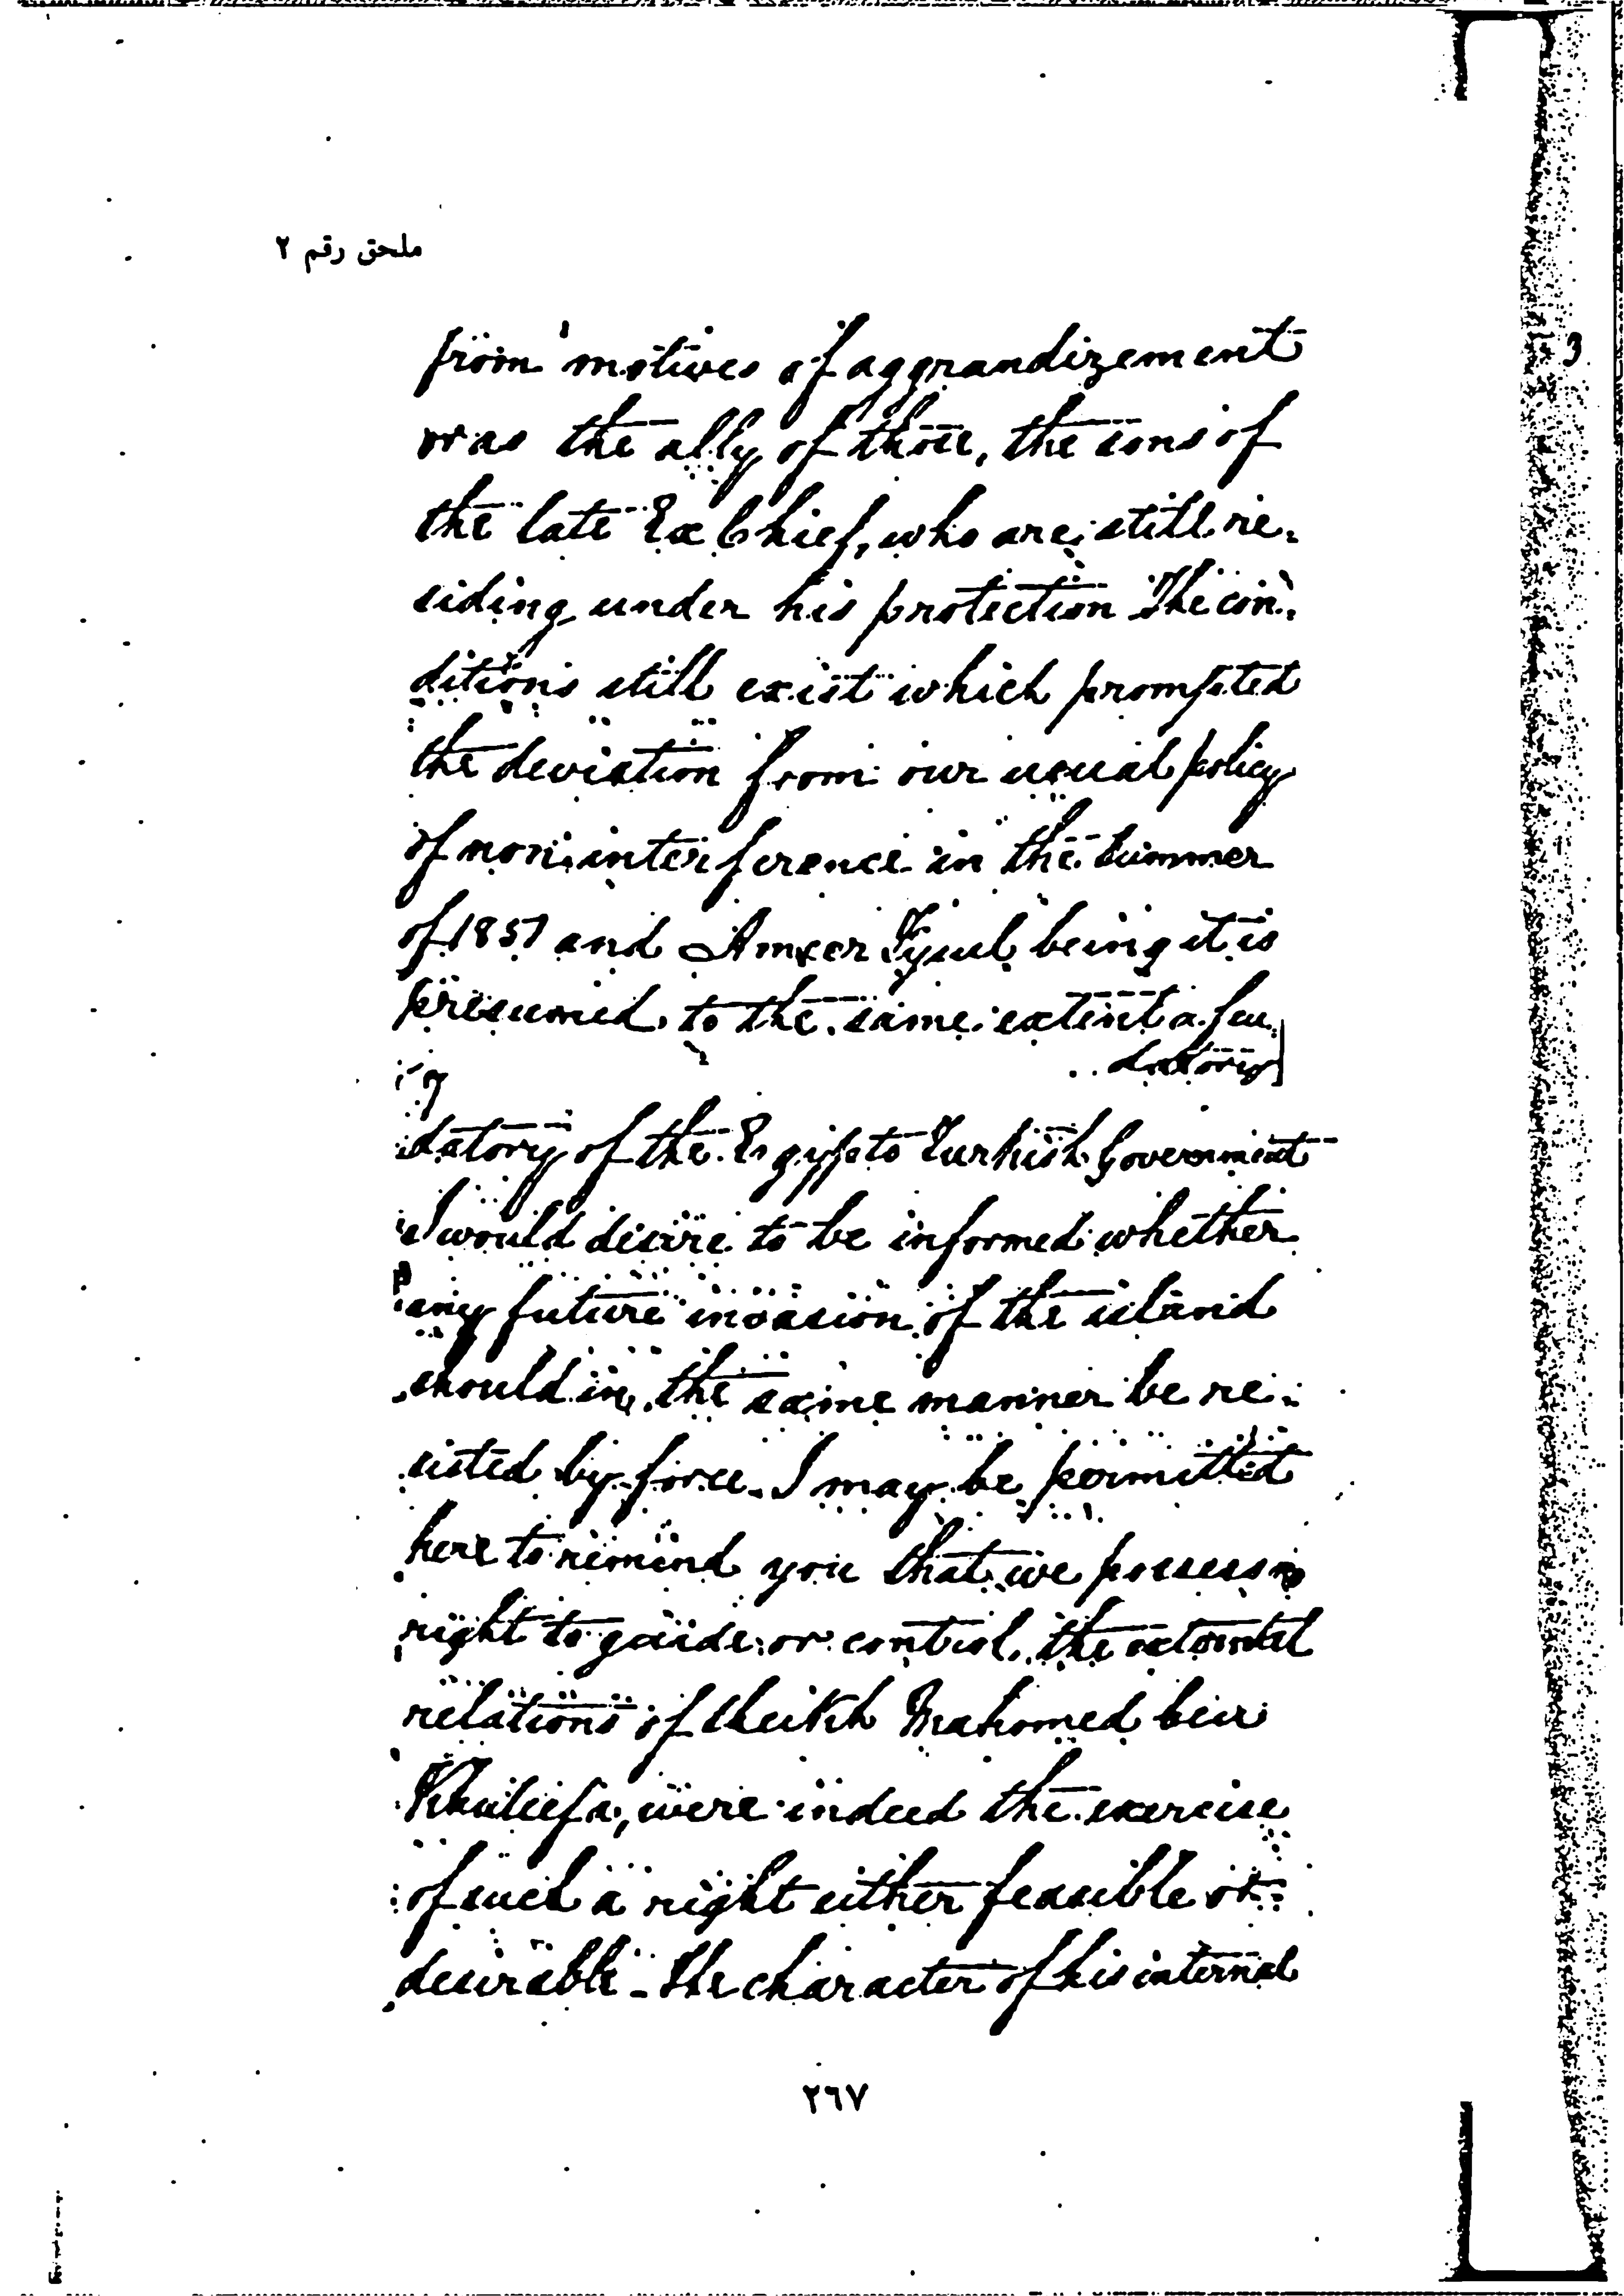 ملحق رقم ٢
from motives of aggrandizement
was the ally of those, the sons of
the late Ex Chief, who are still re-
siding under his protection The con-
ditions still exist which prompted
the deviation from our usual policy
of non-interference in the Summer
of 1851 and Ameer Fysul being it is
presumed to the same extent a feu-
datory
datory of the Egypto Turkish Government
I would desire to be informed whether
any future invasion of the island
should in the same manner be re-
sisted by force_ I may be permitted
here to remind you that we possess no
right to guide or control the external
relations of Sheikh Mahomed bin
Khuleefa, were indeed the exercise
of such a right either feasible or
desirable _ The character of his internal
٢٦٧